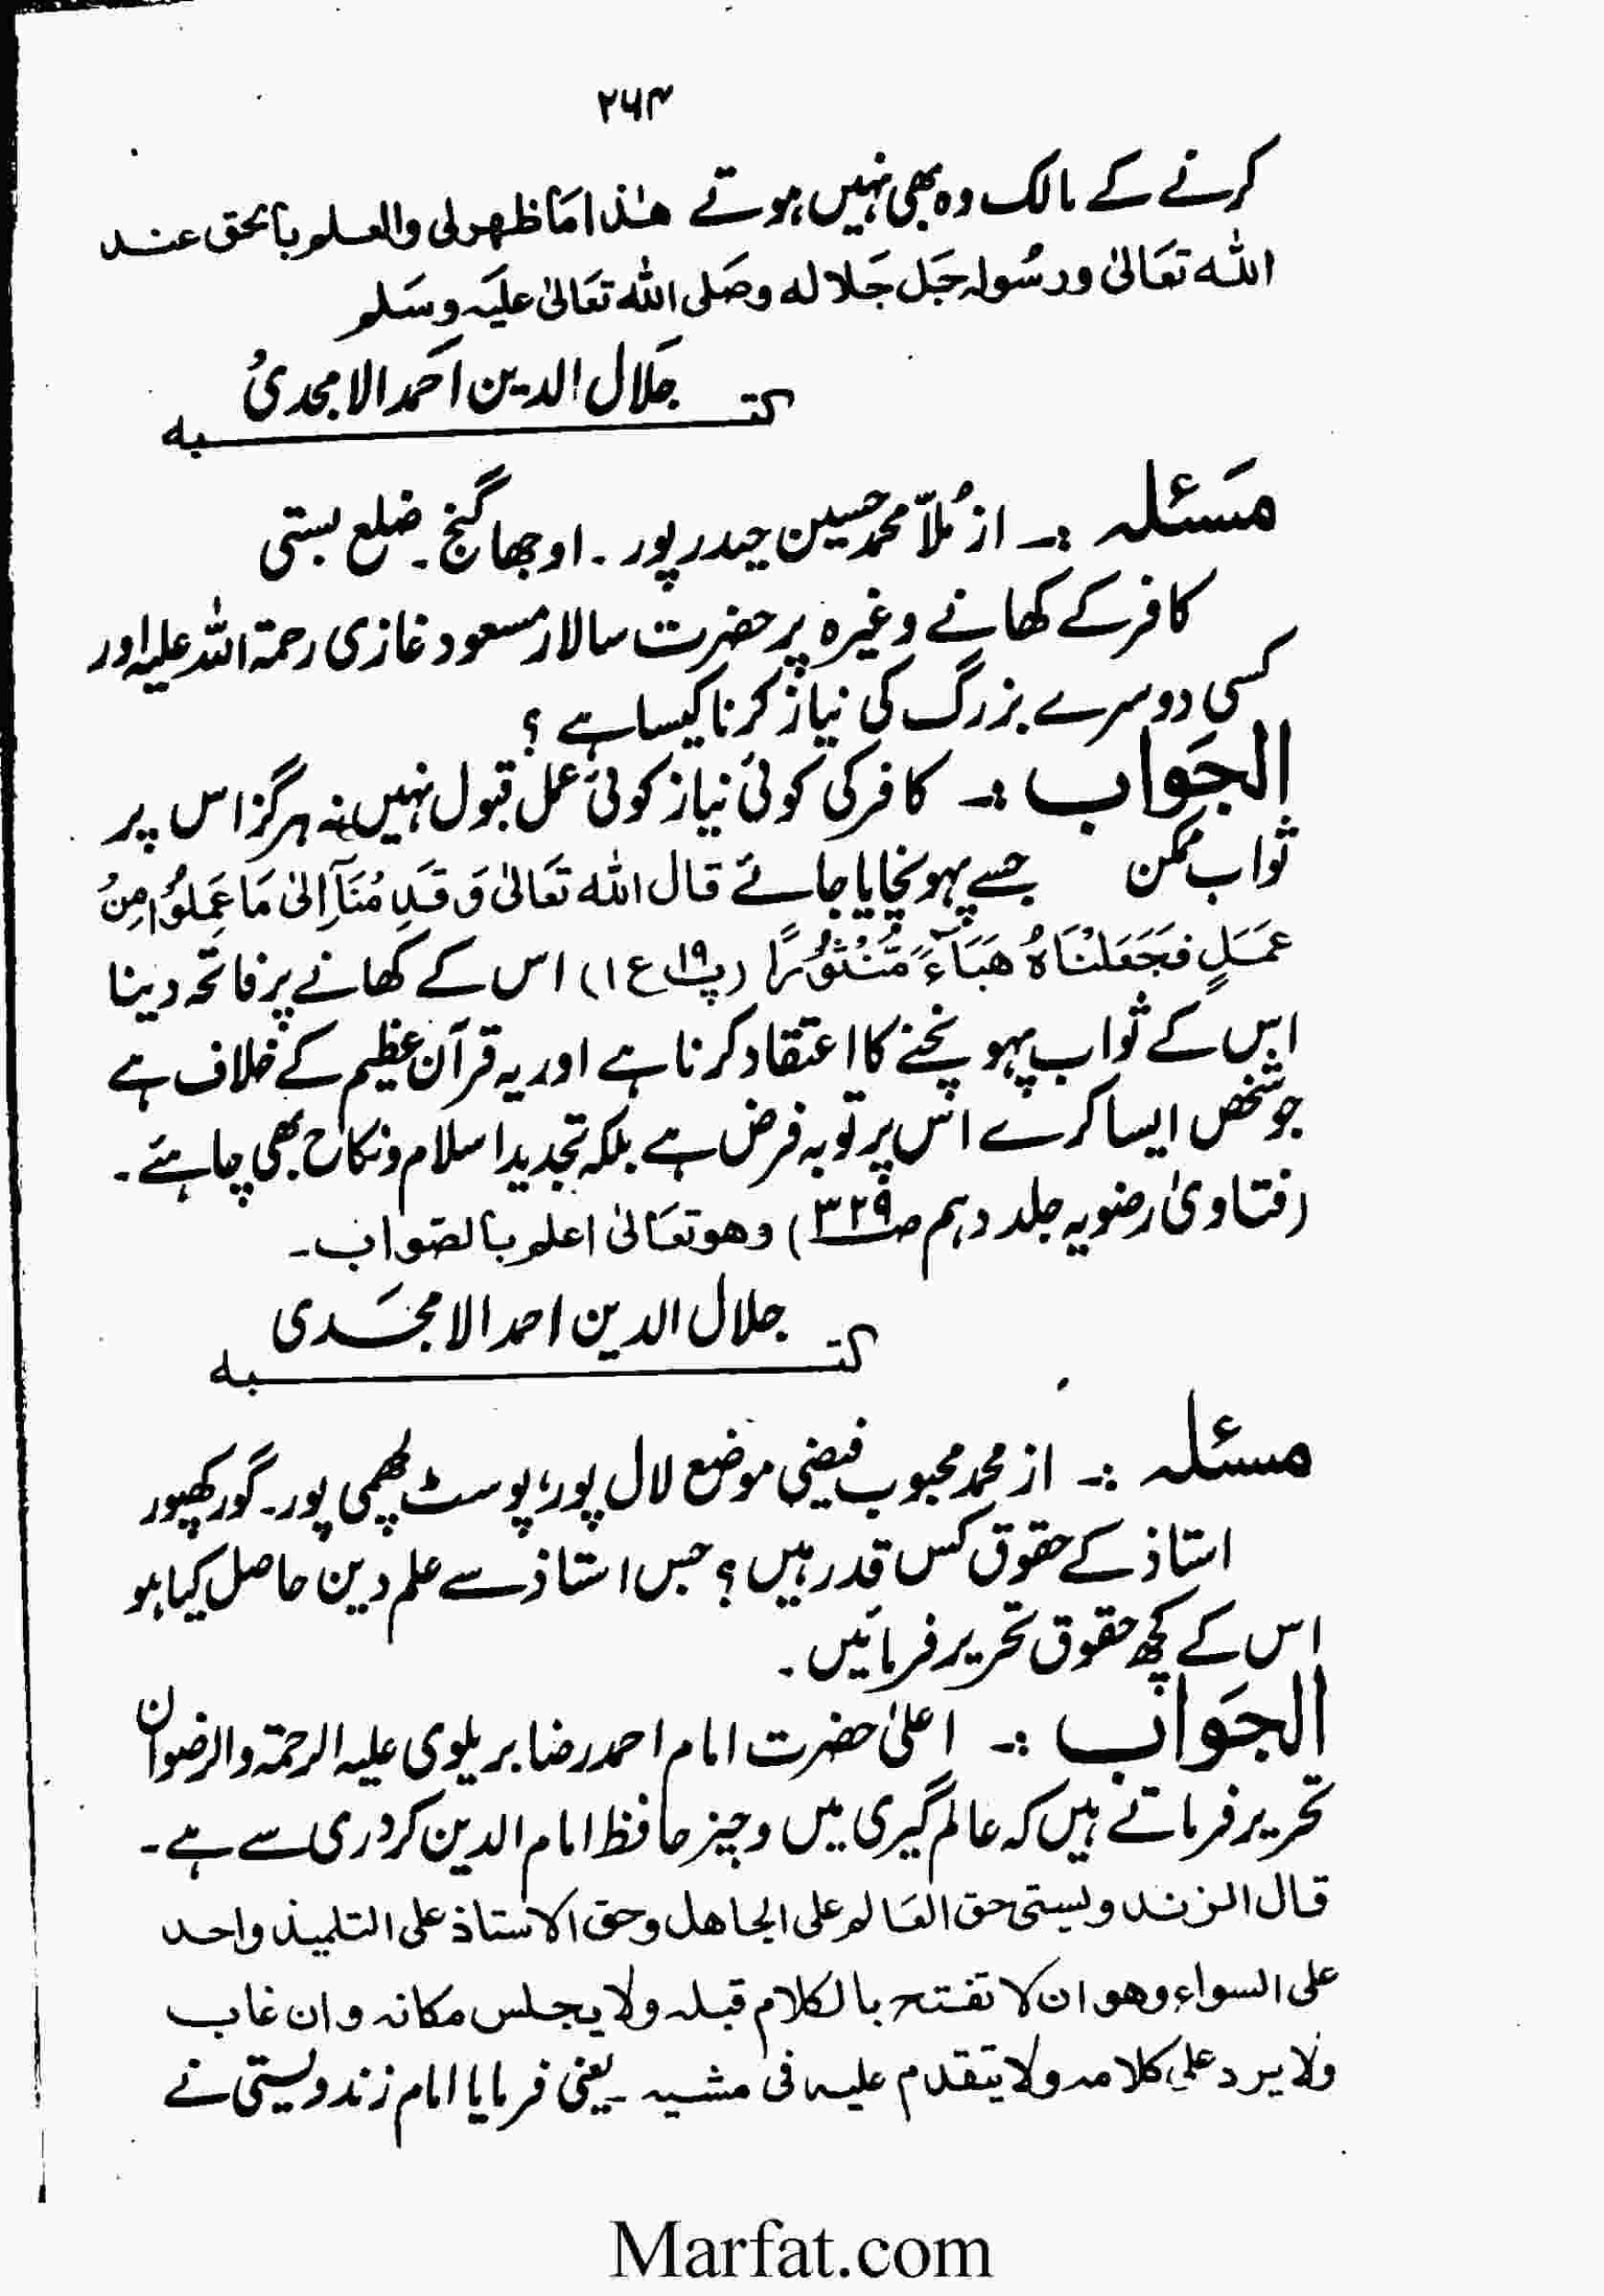 ۲۶۴
کرنے کے مالک وہ بھی نہیں ہوتے ھٰذا مَا ظھر لی والعلم بالحق عند
اللہ تعَالیٰ ورسُولہ جَل جَلالہ وصَلی اللہ تعَالیٰ علیَہ وسَلم
جَلال الدین احَمد الامجدیُ
کتبه
مَسَئلہ :۔ از مُلاّ محمد حسین حیدر پور ۔ اوجھا گنج ۔ ضلع بستی
کافر کے کھانے وغیرہ پر حضرت سالار مسعود غازی رحمۃ اللہ علیہ اور
کسی دوسرے بزرگ کی نیاز کرنا کیسا ہے ؟
الجَواب :۔ کافر کی کوئی نیاز کوئی عمل قبول نہیں نہ ہرگز اس پر
ثواب ممکن جسے پہونچایا جائے قال اللہ تَعَالیٰ وَ قَدِ مُنَآ اِلیٰ مَا عَمِلُوْا مِنُ
عَمَلٍ فَجَعَلْنَاہُ ھَبَآءً مَّنْثُوْرًا (پ۱۹ ع۱) اس کے کھانے پر فاتحہ دینا
اس کے ثواب پہونچنے کا اعتقاد کرنا ہے اور یہ قرآن عظیم کے خلاف ہے
جو شخص ایسا کرے اس پر توبہ فرض ہے بلکہ تجدید اسلام و نکاح بھی چاہئے ۔
(فتاویٰ رضویہ جلد دہم صـ۳۲۹) وھو تعَالیٰ اعلم بالصَواب ۔
جلال الدین احمد الامجَدی
کتبه
مسئلہ :۔ از محمد محبوب فیضی موضع لال پور، پوسٹ لچھمی پور۔ گورکھپور
استاذ کے حقوق کس قدر ہیں ؟ جس استاذ سے علم دین حاصل کیا ہو
اس کے کچھ حقوق تحریر فرمائیں ۔
الجَواب :۔ اعلیٰ حضرت امام احمد رضا بریلوی علیہ الرحمۃ والرضوان
تحریر فرماتے ہیں کہ عالم گیری میں وجیز حافظ امام الدین کردری سے ہے ۔
قال الزندویستی حق العَالم علی الجاھل وحق الاستاذ علی التلمیذ واحد
علی السواء وھو ان لا تفتح بالکلام قبلہ ولا یجلس مکانہ وان غاب
ولا یرد علی کلامہ ولا یتقدم علیہ فی مشیہ ۔ یعنی فرمایا امام زندویستی نے
Marfat.com